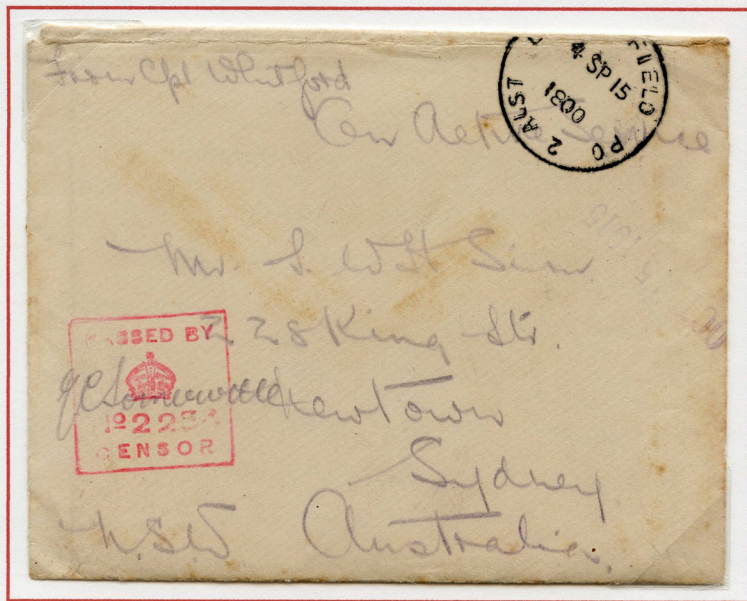 From Cpl Whitford
On Active Service
FIELD PO 2 AUST
4 SP 15
1800
Mr. S. W
228 King Str.
Newtown
Sydney
N.S.W Australia.
PASSED BY
No 223
CENSOR